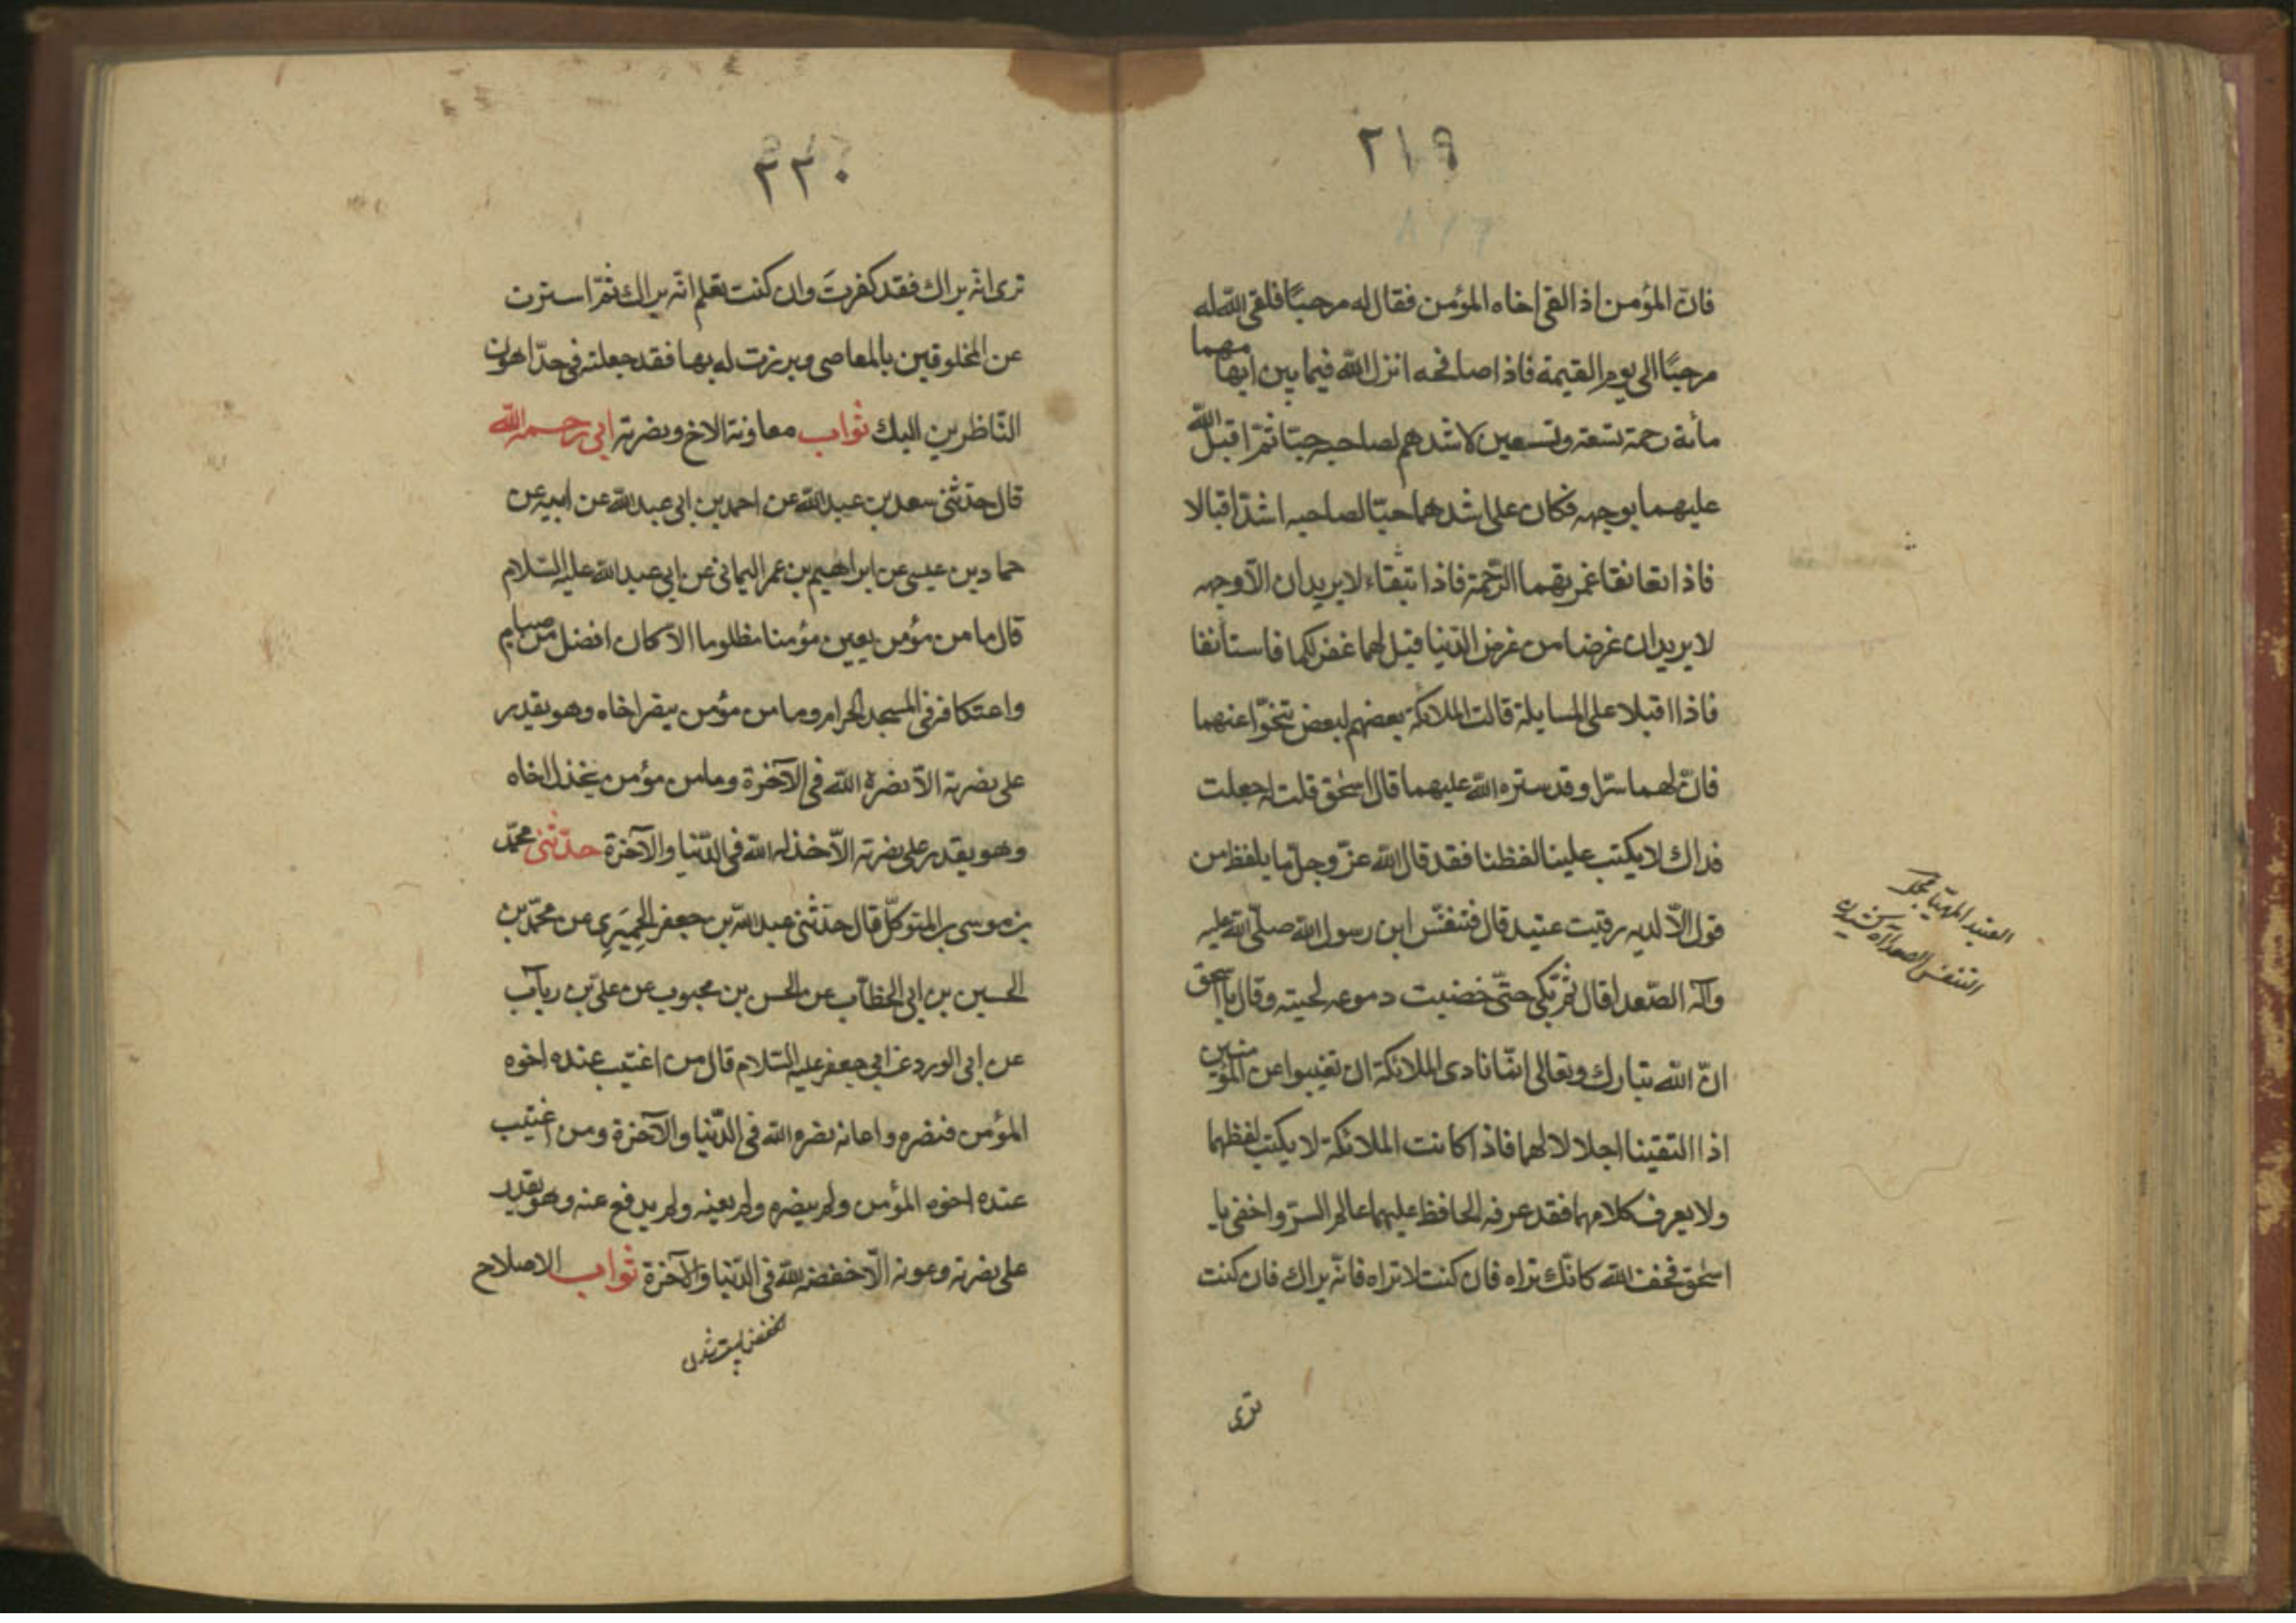 ٢١٩
فانّ المؤمن اذا لقى اخاه المؤمن فقال له مرحبًا فلقى اللّه له
مرحبًا الى يوم القيمة فاذا صافحه انزل اللّه فيما بين ابهامهما
مأئة رحمة تسعة وتسعين لاشدهم لصاحبه حبّا ثمّ اقبل اللّه
عليهما بوجهه فكان على اشدهما حبّا لصاحبه اشدّ اقبالا
فاذا تعانقا غمرتهما الرّحمة فاذا لا يريدان الّا وجهه
لا يريدان غرضا من غرض الدّنيا قيل لهما غفر لكما فاستأنفا
فاذا اقبلا على المسايلة قالت الملائكة بعضهم لبعض تنحّوا عنهما
فانّ لهما سّرا وقد ستره اللّه عليهما قال اسحٰق قلت له جعلت
فداك لا يكتب علينا لفظنا فقد قال اللّه عزّ وجلّ ما يلفظ من
قول الّا لديه رقيب عتيد قال فتنفّس ابن رسول اللّه صلّى اللّه عليه
وآله الصّعدا قال ثمّ بكى حتّى خضبت دموعه لحيته وقال يا اسحق
انّ اللّه تبارك وتعالى انّما نادى الملائكة ان تغيبوا عن المؤمنين
اذا التقينا اجلالا لهما فاذا كانت الملائكة لا يكتب لفظهما
ولا يعرف كلامهما فقد عرفه الحافظ عليهما عالم السرّ واخفى يا
اسحٰق فخف اللّه كانّك تراه فان كنت لا تراه فانّه يراك فان كنت
العتيد المهيّا
التنفس الصعدا آه كشيدن
ترى
٢٢٠
ترى انّه يراك فقد كفرتَ وان كنت تعلم انّه يراك ثمّ استترت
عن المخلوقين بالمعاصى وبرزت له بها فقد جعلته فى حدّ اهون
النّاظرين اليك ثواب معاونة الاخ ونصرته ابى رحمه اللّه
قال حدّثنى سعد بن عبد اللّه عن احمد بن ابى عبد اللّه عن ابيه عن
حماد بن عيسى عن ابراهيم بن عمر اليمانى عن ابى عبد اللّه عليه السّلام
قال ما من مؤمن يعين مؤمنا مظلوما الّا كان افضل من صيام
واعتكافه فى المسجد الحرام وما من مؤمن ينصر اخاه وهو يقدر
على نصرته الّا نصره اللّه فى الآخرة وما من مؤمن يخذل اخاه
وهو يقدر على نصرته الّا خذله اللّه فى الدّنيا والآخرة حدّثنى محمّد
بن موسى بن المتوكلّ قال حدّثنى عبد اللّه بن جعفر الحِميَرِى عن محمّد بن
الحسين بن ابى الخطّاب عن الحسن بن محبوب عن علىّ بن رياب
عن ابى الورد عن ابى جعفر عليه السّلام قال من اغتيب عنده اخوه
المؤمن فنصره واعانه نصره اللّه فى الدّنيا والآخرة ومن اغتيب
عنده اخوه المؤمن ولم ينصره ولم يعنه ولم يدفع عنه وهو يقدر
على نصرته وعونه الّا خفضه اللّه فى الدّنيا والآخرة ثواب الاصلاح
الخفض پست شدن